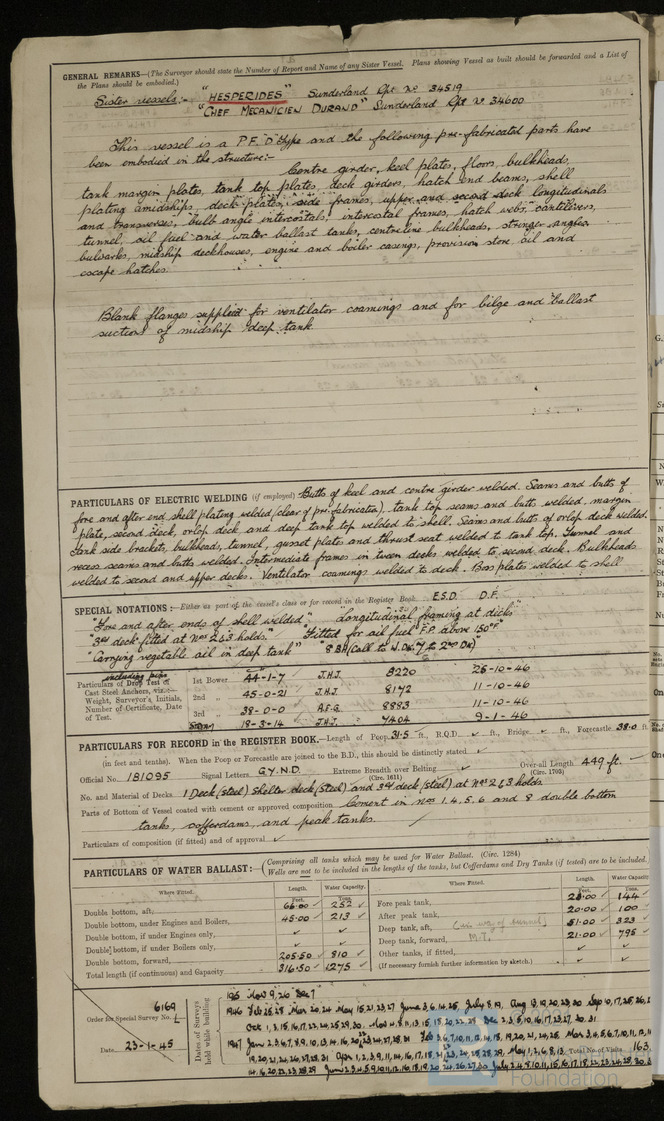 GENERAL REMARKS—(The Surveyor should state the Number of Report and Name of any Sister Vessel. Plans showing Vessel as built should be forwarded and a List of
the Plans should be embodied.)
Sister vessels:- "HESPERIDES" Sunderland Rpt No 34519
"CHEF MECANICIEN DURAND" Sunderland Rpt No 34600
This vessel is a P.F."D" type and the following pre-fabricated parts have
been embodied in the structure:-
Centre girder, keel plates, floors, bulkheads,
tank margin plates, tank top plates, deck girders, hatch end beams, shell
plating amidships, deck plates, side frames, upper and second deck longitudinals
and transverses, bulb angle intercostals, intercostal frames, hatch webs, cantilevers,
tunnel, oil fuel and water ballast tanks, centreline bulkheads, stringer angles
bulwarks, midship deckhouses, engine and boiler casings, provision store, oil and
escape hatches.
Blank flanges supplied for ventilator coamings and for bilge and ballast
suctions of midship deep tank
PARTICULARS OF ELECTRIC WELDING (if employed) Butts of keel and centre girder welded. Seams and butts of
fore and after end shell plating welded (clear of pre-fabrication), tank top seams and butts welded, margin
plate, second deck, orlop deck and deep tank top welded to shell. Seams and butts of orlop deck welded.
Tank side brackets, bulkheads, tunnel, gusset plates and thrust seat welded to tank top. Tunnel and
recess seams and butts welded. Intermediate frames in tween decks welded to second deck. Bulkheads
welded to second and upper decks. Ventilator coamings welded to deck. Boss plates welded to shell
SPECIAL NOTATIONS:—Either as part of the vessel's class or for record in the Register Book. E.S.D. D.F.
"Fore and after ends of shell welded" "Longitudinal framing at decks"
"3rd deck fitted at Nos 2&3 holds." "Fitted for oil fuel F.P. above 150°F"
"Carrying vegetable oil in deep tank" "8 BH (Call to W.Dk. 7 to 2nd Dk)"
including pins
Particulars of Drop Test of
Cast Steel Anchors, viz.:—
Weight, Surveyor's Initials,
Number of Certificate, Date
of Test.
1st Bower 44-1-7 J.H.J. 8220 25-10-46
2nd „ 45-0-21 J.H.J. 8172 11-10-46
3rd „ 38-0-0 A.F.G. 8883 11-10-46
Stream 18-3-14 J.H.J. 7404 9-1-46
PARTICULARS FOR RECORD in the REGISTER BOOK.—Length of Poop 31.5 ft., R.Q.D. ✓ ft., Bridge ✓ ft., Forecastle 38.0 ft.
(in feet and tenths). When the Poop or Forecastle are joined to the B.D., this should be distinctly stated. ✓
Official No. 181095 Signal Letters G.Y.N.D. Extreme Breadth over Belting ✓ Over-all Length 449 ft. ✓
(Circ. 1611) (Circ. 1703)
No. and Material of Decks 1 Deck (steel) Shelter deck (steel) and 3rd deck (steel) at Nos 2&3 holds.
Parts of Bottom of Vessel coated with cement or approved composition Cement in Nos 1, 4, 5, 6 and 8 double bottom
tanks, cofferdams, and peak tanks.
Particulars of composition (if fitted) and of approval ✓
PARTICULARS OF WATER BALLAST:—
(Comprising all tanks which may be used for Water Ballast. (Circ. 1284)
Wells are not to be included in the lengths of the tanks, but Cofferdams and Dry Tanks (if tested) are to be included.
Where Fitted. Length. Water Capacity. Where Fitted. Length. Water Capacity.
Feet. Tons. Feet. Tons.
Double bottom, aft, 66.00 ✓ 252 ✓
Double bottom, under Engines and Boilers, 45.00 ✓ 213 ✓
Double bottom, if under Engines only, ✓ ✓
Double bottom, if under Boilers only, ✓ ✓
Double bottom, forward, 205.50 ✓ 810 ✓
Total length (if continuous) and Capacity 316.50 ✓ 1275 ✓
Fore peak tank, 144 ✓
After peak tank, 20.00 ✓ 100 ✓
Deep tank, aft, (in way of tunnel) 51.00 ✓ 323 ✓
Deep tank, forward, M.T. 21.00 ✓ 795 ✓
Other tanks, if fitted, ✓ ✓
(If necessary furnish further information by sketch.)
Order for Special Survey No. 6169
Date 23-1-45
Dates of Surveys held while building
Total No. of Visits 163
Foundation